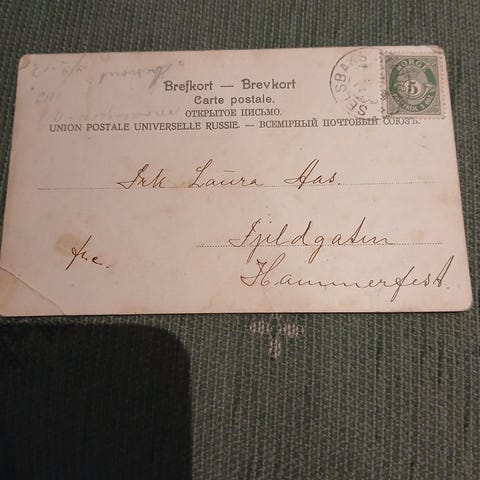 Brefkort — Brevkort
Carte postale.
ОТКРЫТОЕ ПИСЬМО.
UNION POSTALE UNIVERSELLE RUSSIE. — ВСЕМІРНЫЙ ПОЧТОВЫЙ СОЮЗЪ.
NORGE
5
Frk Laura Aas.
Fjeldgaten
frc.
Hammerfest.